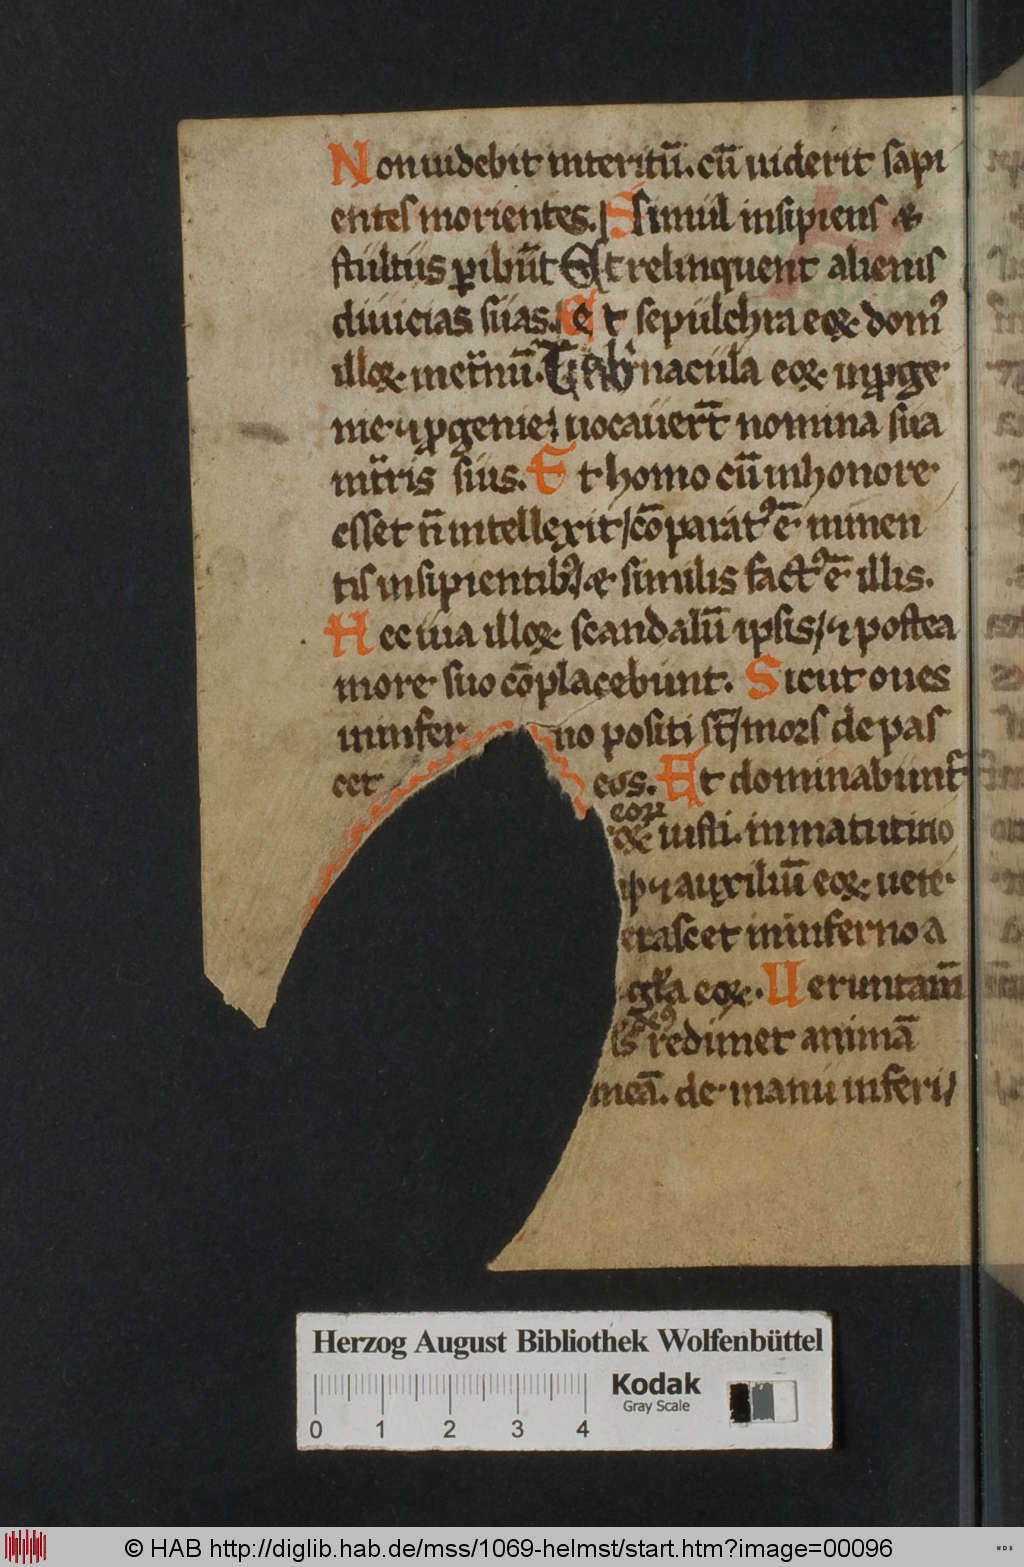 Non uidebit interitū. cū uiderit sapi
entes morientes. Simul insipiens &
stultus ꝑibūt Et relinquent alienis
diuicias suas. et sepulchra eoꝝ domꝰ
illoꝝ inet̾nū. Tab̾nacula eoꝝ in ꝓge
nie ⁊ ꝓgenie uocauer̄t nomina sua
in t̄ris suis. Et homo cū in honore
esset n̄ intellexit / cōparatꝰ ē iumen
tis insipientibꝰ & similis factꝰ ē illis.
Hec uia illoꝝ scandalū ipsis / ⁊ postea
in ore suo cōplacebunt. Sicut oues
in infer no positi sūt / mors de pas
cet eos. Et dominabunt̾
eoꝝ
iusti. in matutino
⁊ auxiliū eoꝝ uete
erascet in inferno a
gl̾a eoꝝ. Ueruntam̄
deꝰ
redimet animā
meā. de manu inferi /
Herzog August Bibliothek Wolfenbüttel
Kodak
Gray Scale
0 1 2 3 4
© HAB http://diglib.hab.de/mss/1069-helmst/start.htm?image=00096